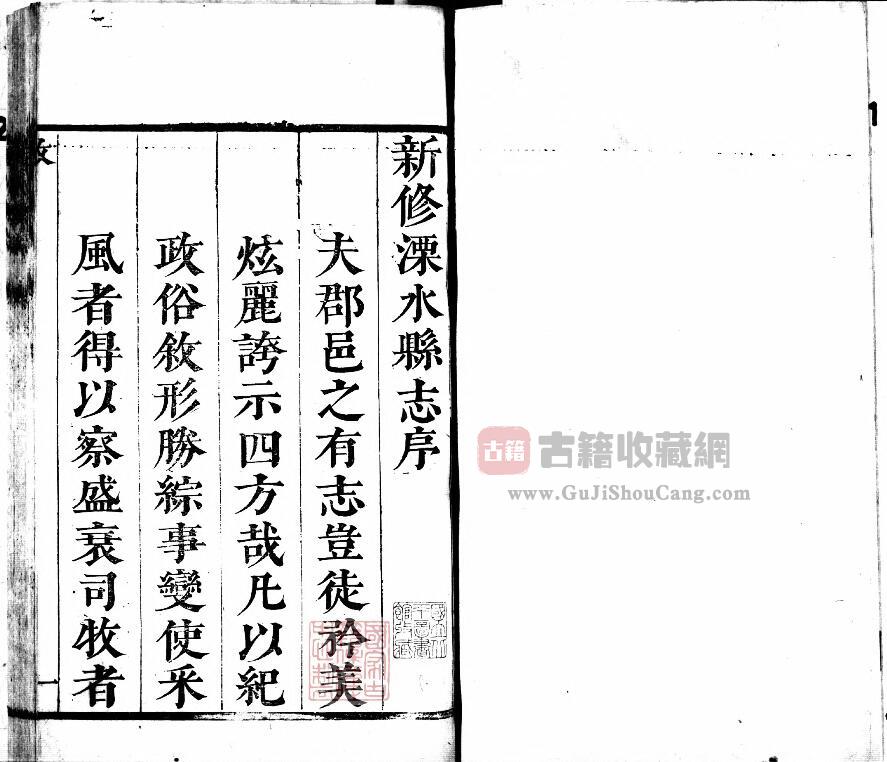 新修溧水縣志序
夫郡邑之有志豈徒矜美
炫麗誇示四方哉凡以紀
政俗敘形勝綜事變使采
風者得以察盛衰司牧者
一
古籍
古籍收藏網
www.GuJiShouCang.com